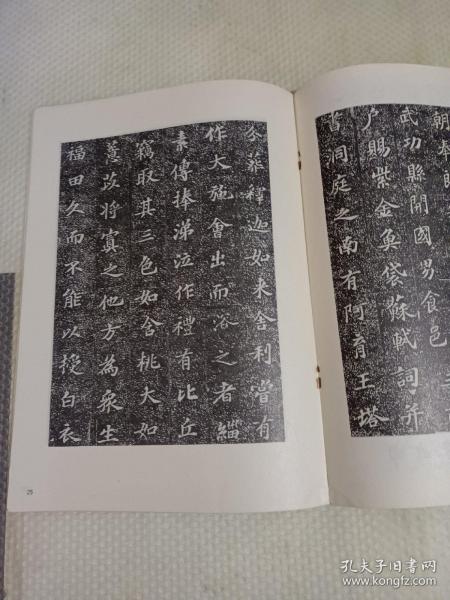 朝奉郎
武功縣開國男食邑三
戶賜紫金魚袋蘇軾詞并
昔洞庭之南有阿育王塔
分葬釋迦如來舍利嘗有
作大施會出而浴之者緇
素傳捧涕泣作禮有比丘
竊取其三色如含桃大如
薏苡將寘之他方為眾生
福田久而不能以授白衣
25
孔夫子旧书网
www.kongfz.com